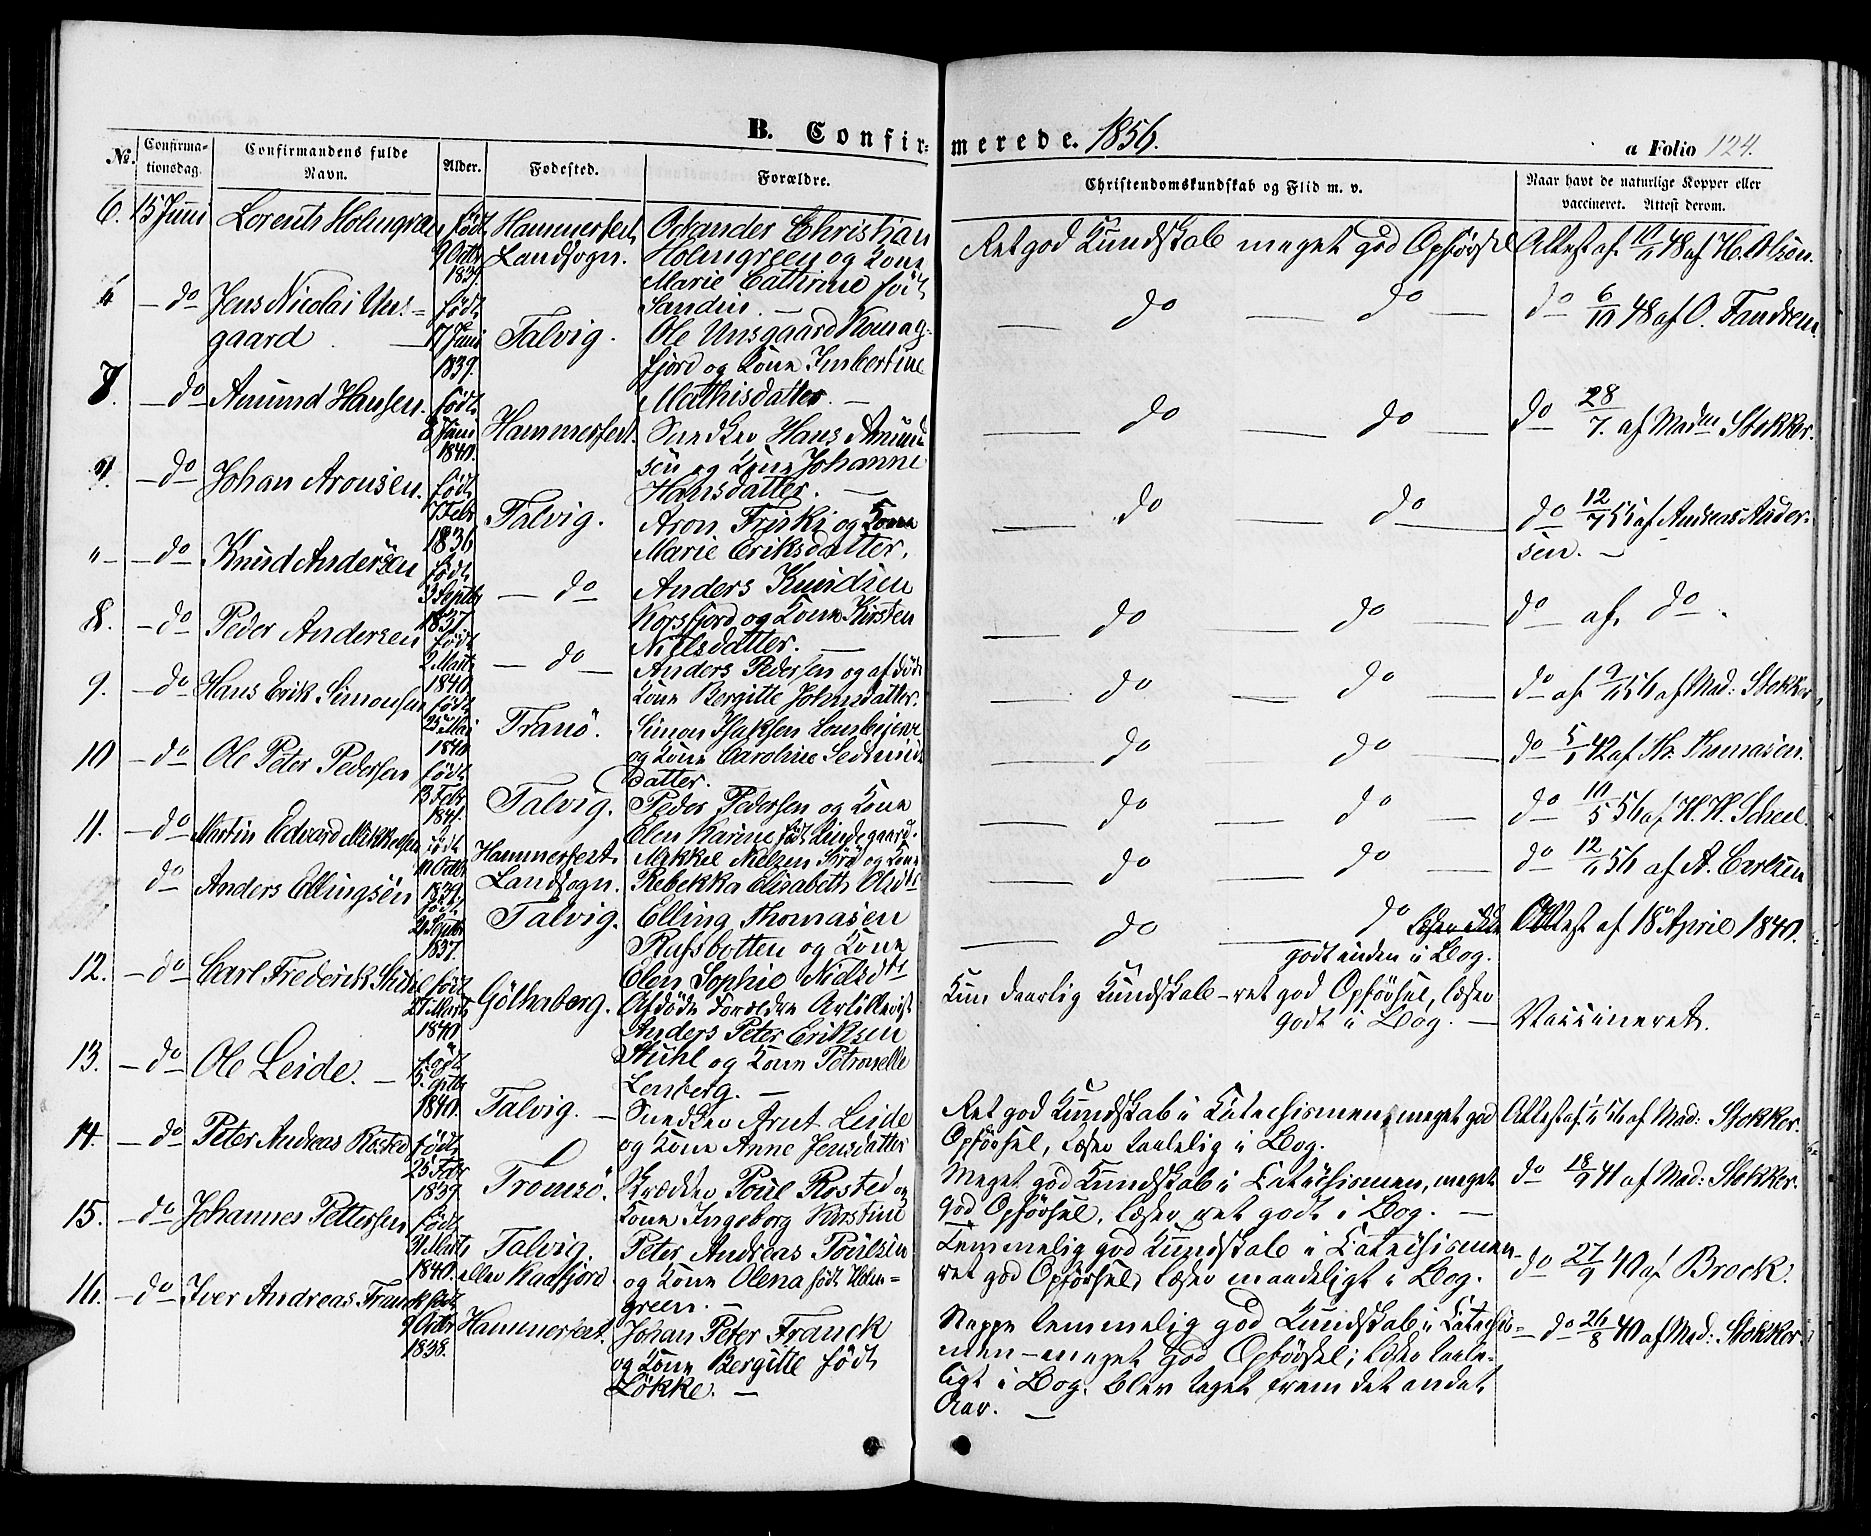 B. Confir- merede. 1856.
a Folio 124.
No. Confirma-tionsdag. Confirmandens fulde Navn. Alder. Fødested. Forældre. Christendomskundskab og Flid m. v. Naar havt de naturlige Kopper eller vaccineret. Attest derom.
6. 15 Juni Lorents Holmgren født 9 Octbr 1839 Hammerfest Landsogn. Octander Christian
Holmgreen og Kone
Marie Cathrine født
Sandin. —
Ret god Kundskab meget god Opførsel Attest af 48 af H. Olsen.
— do Jens Nicolai Uns=
gaard. født 17 Juni 1839. Talvig. Ole Unsgaard Komag-
fjord og Kone Imbertine
Mathisdatter. —
— do — do — do 6/10 48 af O. Tandrem
7. — do Amund Hansen. født 8 Juni 1840. Hammerfest. Snedker Hans Amund
sen og Kone Johanne
Hansdatter. —
— do — do — do 28/7. af Madm Stokker.
— do Johan Aronsen. født 7 Febr 1836 Talvig. Aron Friski og Kone
Marie Eriksdatter.
— do — do — do 12/7 55 af Andreas Ander-
sen. —
" — do Knud Andersen født 3 Septbr 1837 — do Anders Knudsen
Korsfjord og Kone Kirsten
Nielsdatter. —
— do — do — do af do.
8. — do Peder Andersen født 2 Marts 1840 — do — Anders Pedersen og afdøde
Kone Bergitte Johnsdatter.
— do — do — do af 56 af Mad: Stokker
9. — do Hans Erik Simonsen født 25 Mai 1840 Tranö. Simon Isaksen
og Kone Caroline
datter.
— do — do — do 42 af Thomasen.
10 — do Ole Peter Pedersen født 13 Febr 1841. Talvig. Peder Pedersen og Kone
Elen Karine født Lindegaard.
— do — do — do 10/5 56 af H. H. Scheel.
11. — do Martin Edvard Mikkelsen født 11 Octbr 1839 Hammerfest Landsogn. Mikkel Nielsen og Kone
Rebekka Elisabeth
— do — do — do 56 af A. Carlsen
do Anders Ellingsön født 21 Septbr 1837. Talvig. Elling Thomasen
Rafsbotten og Kone
Elen Sophie Nielsdtr
— do — do læser ikke
godt inden i Bog. Attest af 18 April 1840.
12. — do Carl Frederik Stuhl født 27 Marts 1840 Göthaborg. Afdøde Forældre
Anders Peter Eriksen
Stuhl og Kone Petronelle
Lenberg. —
Kun daarlig Kundskab — ret god Opførsel, læser
godt i Bog. — Vaccineret.
13. — do Ole Leide. — født 15. 1840. Talvig. — Snedker Arnt Leide
og Kone Anne Jensdatter
Ret god Kundskab i Catechismen, meget god
Opførsel, læser taalelig i Bog. Attest af 56 af Mad: Stokker.
14. — do Peter Andreas Rosted født 25 Febr 1839 Tromsö. Skrædder Poul Rosted og
Kone Ingeborg Kirstine
Meget god Kundskab i Catechismen, meget
god Opførsel, læser ret godt i Bog. — do 18/9 41 af Mad: Stokker.
15. — do Johannes Pettersen født 31 Marts 1840. Talvig. eller Kaafjord Peter Andreas Poulsen
og Kone Olena født Holm=
green. —
Temmelig god Kundskab i Catechismen —
ret god Opførsel, læser maadeligt i Bog. do 27/9 40 af Brock.
16. — do Iver Andreas Franck født 9 Octbr 1838. Hammerfest. Johan Peter Franck
og Kone Bergitte født
Løkke. —
Neppe temmelig god Kundskab i Catechis-
men — meget god Opførsel; læser taale-
ligt i Bog. blev taget frem det andet
Aar. — — do 26/8 40 af Mad: Stokker